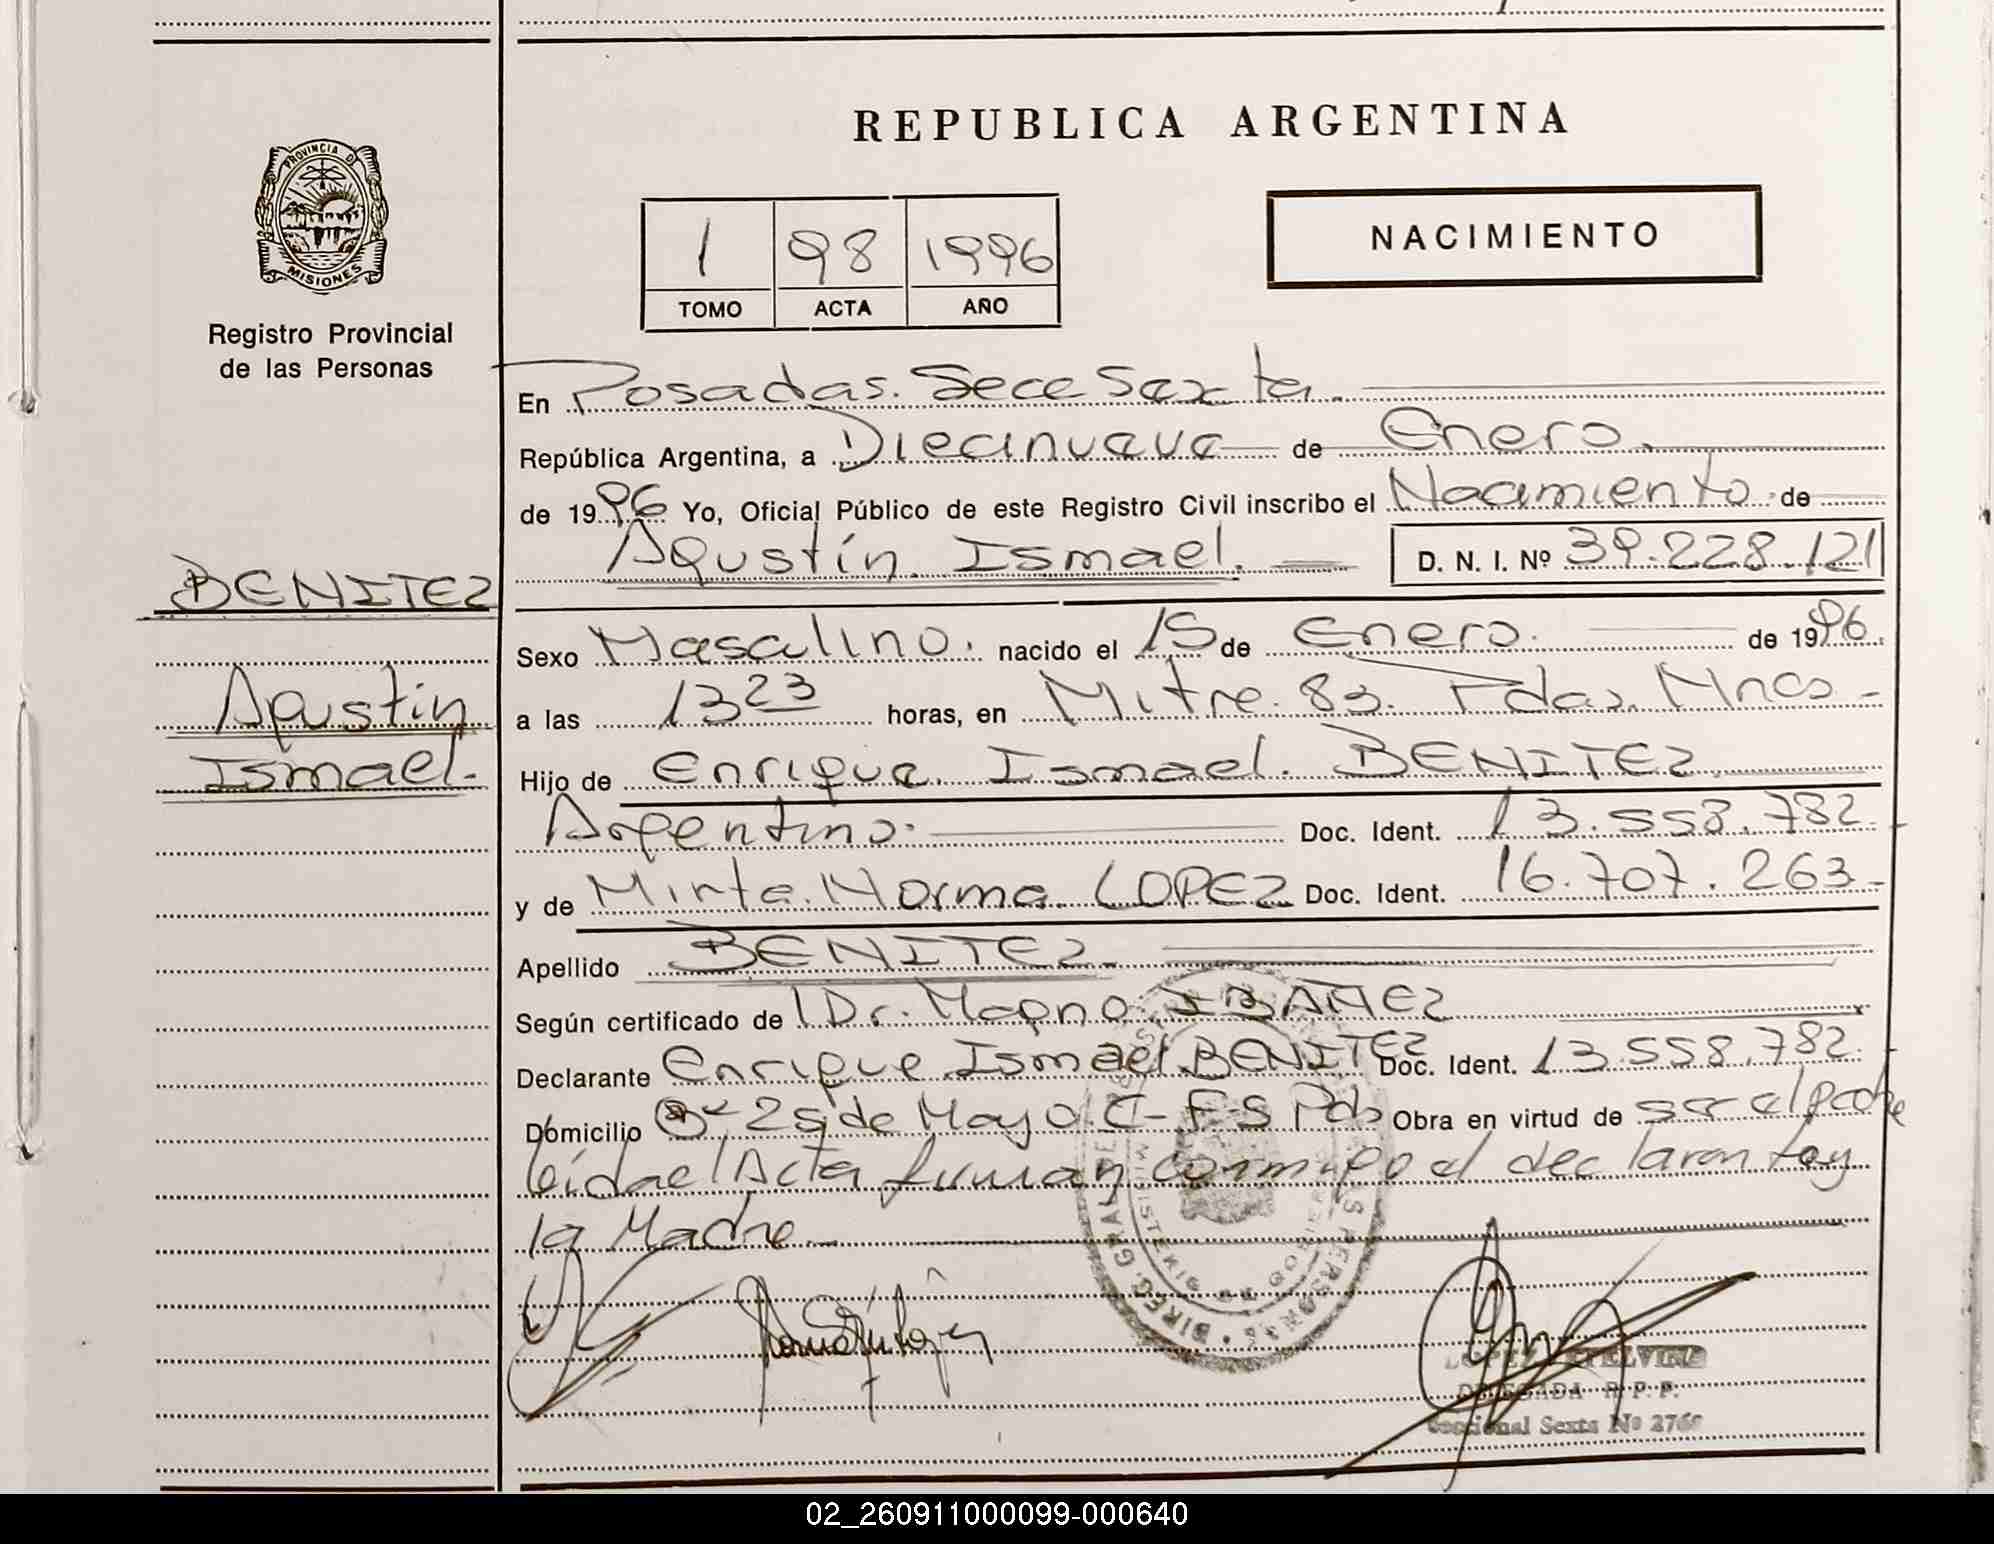 REPUBLICA ARGENTINA
PROVINCIA D
MISIONES
Registro Provincial
de las Personas
1 98 1996
TOMO ACTA AÑO
NACIMIENTO
En Posadas. Secc Sexta.
República Argentina, a Diecinueve de Enero.
de 1996 Yo, Oficial Público de este Registro Civil inscribo el Nacimiento de
Agustín Ismael. D. N. I. Nº 39.228.121
BENITEZ
Agustín
Ismael.
Sexo Masculino. nacido el 15 de Enero. de 1996.
a las 13 23 horas, en Mitre. 83. Pdas. Mnes -
Hijo de Enrique Ismael. BENITEZ
Argentino. Doc. Ident. 13.558.782
y de Mirta Norma LOPEZ Doc. Ident. 16.707.263-
Apellido BENITEZ
Según certificado de Dr. Magno IBAÑEZ
Declarante Enrique Ismael BENITEZ Doc. Ident. 13.558.782
Domicilio 25 de Mayo C-F-S Pds Obra en virtud de ser el padre
leída el Acta firman conmigo el declarante y
la Madre
LOPEZ ETELVINA
DELEGADA R.P.P.
Seccional Sexta Nº
02_260911000099-000640